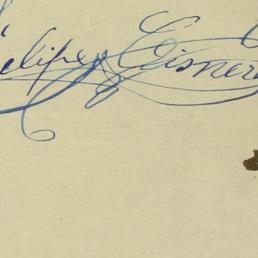 elipe Cisner